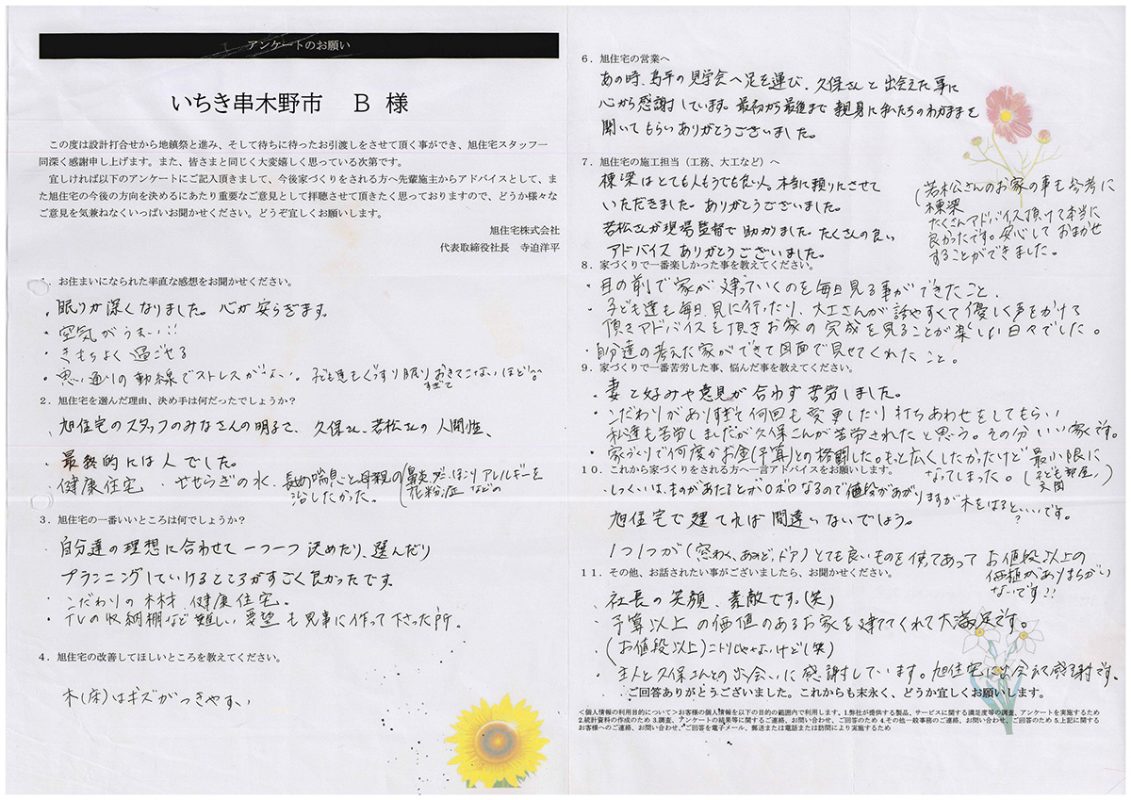 アンケートのお願い
いちき串木野市　B 様
この度は設計打合せから地鎮祭と進み、そして待ちに待ったお引渡しをさせて頂く事ができ、旭住宅スタッフ一
同深く感謝申し上げます。また、皆さまと同じく大変嬉しく思っている次第です。
宜しければ以下のアンケートにご記入頂きまして、今後家づくりをされる方へ先輩施主からアドバイスとして、ま
た旭住宅の今後の方向を決めるにあたり重要なご意見として拝聴させて頂きたく思っておりますので、どうか様々な
ご意見を気兼ねなくいっぱいお聞かせください。どうぞ宜しくお願いします。
旭住宅株式会社
代表取締役社長　寺迫洋平
１．お住まいになられた率直な感想をお聞かせください。
・眠りが深くなりました。心が安らぎます。
・空気がうまい!!
・きもちよく過ごせる
・思い通りの動線でストレスがない。子ども達もぐっすり眠りすぎておきてこないほど
２．旭住宅を選んだ理由、決め手は何だったでしょうか？
・旭住宅のスタッフのみなさんの明るさ、久保さん、若松さんの人間性、
・最終的には人でした。
・健康住宅、・せせらぎの水、長女の喘息と母親の(鼻炎、ダニ、ほこりアレルギーを
花粉症などの
治したかった。
３．旭住宅の一番いいところは何でしょうか？
・自分達の理想に合わせて一つ一つ決めたり、選んだり
プランニングしていけるところがすごく良かったです。
・こだわりの木材、健康住宅。
・TVの収納棚など難しい要望も見事に作って下さった所。
４．旭住宅の改善してほしいところを教えてください。
木(床)はキズがつきやすい
６．旭住宅の営業へ
あの時、の見学会へ足を運び、久保さんと出会えた事に
心から感謝しています。最初から最後まで親身に私たちのわがままを
聞いてもらいありがとうございました。
７．旭住宅の施工担当（工務、大工など）へ
棟梁はとても人もうでも良い人。本当に頼りにさせて
いただきました。ありがとうございました。
若松さんが現場監督で助かりました。たくさんの良い
アドバイスありがとうございました。
(若松さんのお家の事も参考に
棟梁
たくさんアドバイス頂けて本当に
良かったです。安心しておまかせ
することができました。
８．家づくりで一番楽しかった事を教えてください。
・目の前で家が建っていくのを毎日見る事ができたこと、
・子ども達も毎日見に行ったり、大工さんが話やすくて優しく声をかけて
頂きアドバイスを頂きお家の完成を見ることが楽しい日々でした。
・自分達の考えた家ができて図面で見せてくれたこと。
９．家づくりで一番苦労した事、悩んだ事を教えてください。
・妻と好みや意見が合わず苦労しました。
・こだわりがありすぎて何回も変更したり打ちあわせをしてもらい
私達も苦労しましたが久保さんが苦労されたと思う。その分いい家です。
・家づくりで何度かお金(予算)との格闘した。もっと広くしたかったけど最小限に
なってしまった。(子ども部屋、玄関)
１０．これから家づくりをされる方へ一言アドバイスをお願いします。
・しっくいは、ものがあたるとボロボロなるので値段があがりますが木をはるといいです。
?
旭住宅で建てれば間違いないでしょう。
1つ1つが(窓わく、あみど、ドア)とても良いものを使てあって お値段以上の
価値がありまちがい
ないです!!
１１．その他、お話されたい事がございましたら、お聞かせください。
・社長の笑顔、素敵です。(笑)
・予算以上の価値のあるお家を建ててくれて大満足です。
・(お値段以上)ニトリじゃないけど(笑)
・主人と久保さんとの出会いに感謝しています。旭住宅には全てに感謝です。
ご回答ありがとうございました。これからも末永く、どうか宜しくお願いします。
＜個人情報の利用目的について＞お客様の個人情報を以下の目的の範囲内で利用します。1.弊社が提供する製品、サービスに関する満足度等の調査、アンケートを実施するため
2.統計資料の作成のため 3.調査、アンケートの結果等に関するご連絡、お問い合わせ、ご回答のため 4.その他一般事務のご連絡、お問い合わせ、ご回答のため 5.上記に関する
お客様へのご連絡、お問い合わせ、ご回答を電子メール、郵送または電話または訪問により実施するため